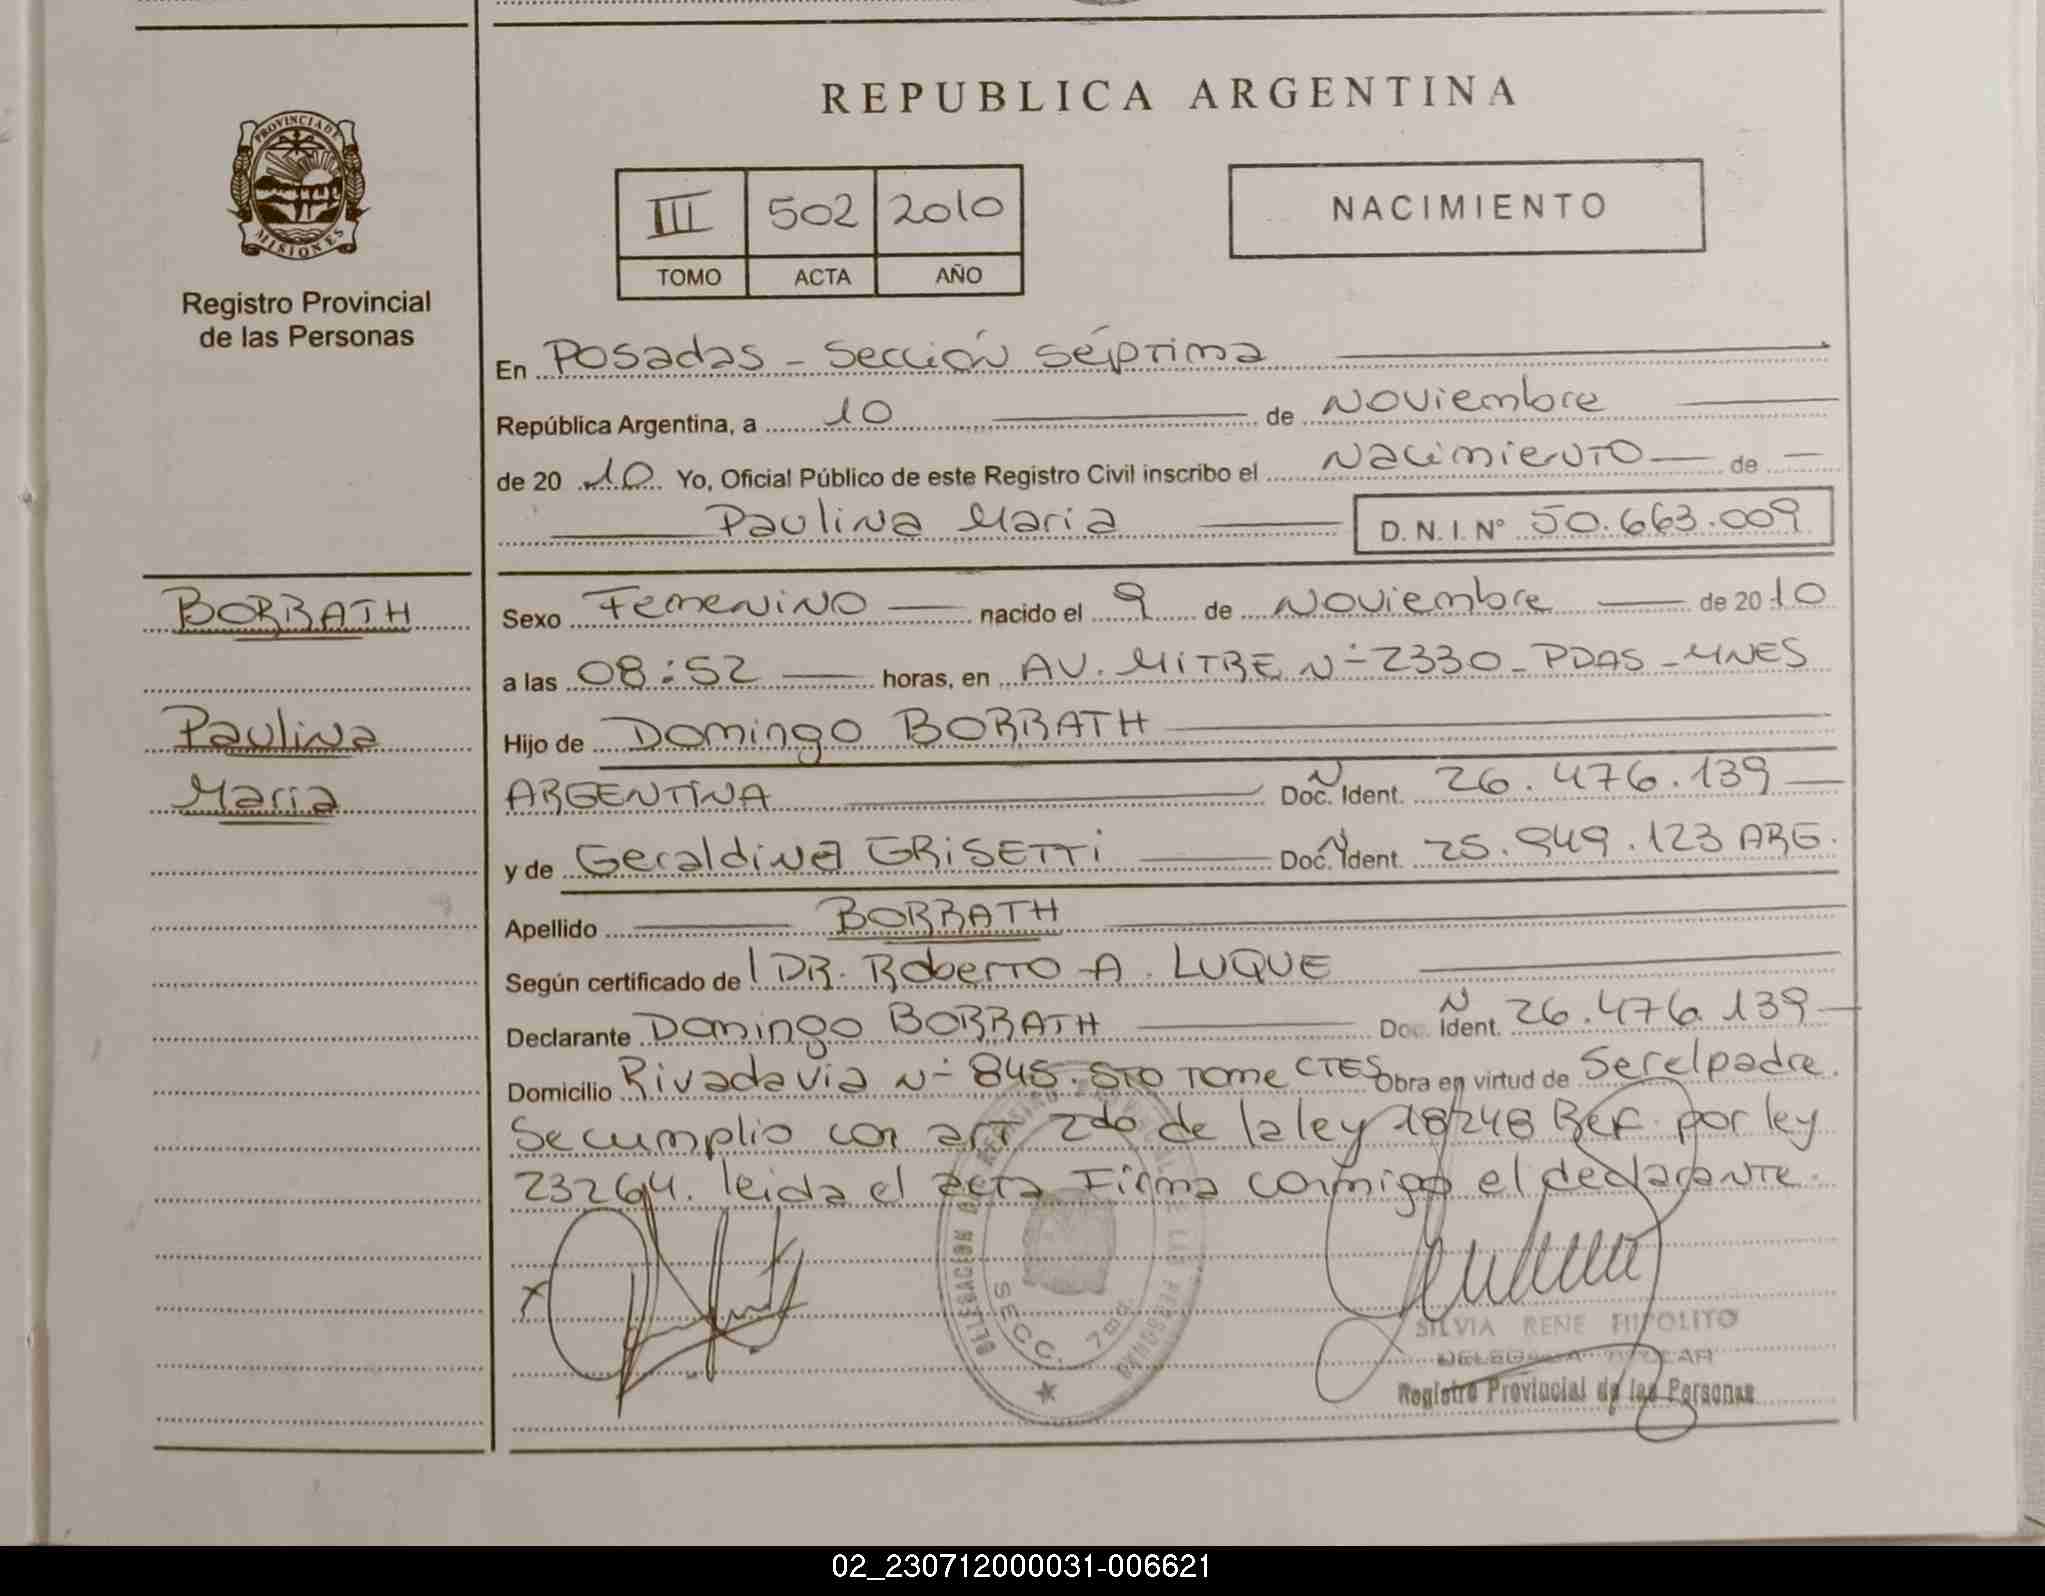 REPUBLICA ARGENTINA
PROVINCIA DE
MISIONES
Registro Provincial
de las Personas
III 502 2010
TOMO ACTA AÑO
NACIMIENTO
En Posadas - Sección Séptima
República Argentina, a 10 de Noviembre
de 20 10 Yo, Oficial Público de este Registro Civil inscribo el Nacimiento de
Paulina Maria D.N.I. N° 50.663.009
BORRATH
Paulina
Maria
Sexo Femenino nacido el 9 de Noviembre de 2010
a las 08:52 horas, en AV. MITRE N- 2330 - PDAS - MNES
Hijo de Domingo BORRATH
ARGENTINA Doc. Ident. N 26.476.139
y de Geraldina GRISETTI Doc. Ident. N 25.949.123 ARG.
Apellido BORRATH
Según certificado de DR. Roberto A. LUQUE
Declarante Domingo BORRATH Doc. Ident. N 26.476.139
Domicilio Rivadavia N- 845. STO TOME CTES Obra en virtud de Ser el padre.
Se cumplio con art 2do de la ley 18248 Ref. por ley
23264. leida el acta Firma conmigo el declarante.
SECC. 7ma
SILVIA RENE HIPOLITO
DELEGADA TITULAR
Registro Provincial de las Personas
02_230712000031-006621